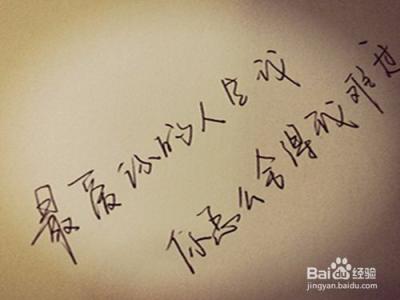 最爱你的人是我
你怎么舍得我难过
Baidu 百度 经验
jingyan.baidu.com